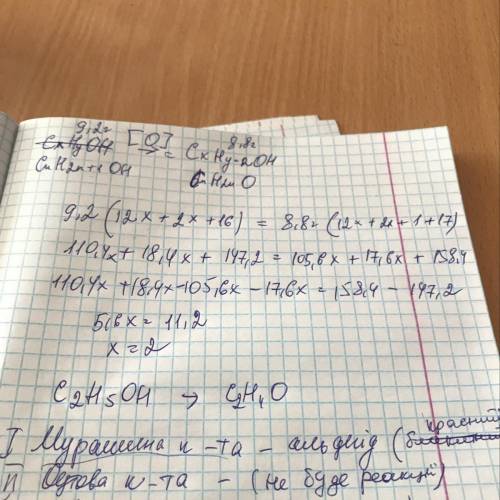 9,2г 8,8г
CxHyOH [O] → = CxHy-2OH
CnH2n+1OH CnH2nO
9,2 (12x + 2x + 16) = 8,8 (12x + 2x + 1 + 17)
110,4x + 18,4x + 147,2 = 105,6x + 17,6x + 158,4
110,4x + 18,4x - 105,6x - 17,6x = 158,4 - 147,2
5,6x = 11,2
x = 2
C2H5OH → C2H4O
красний
I Мурашина к-та - альдегід (
II Оцтова к-та - (не буде реакції)